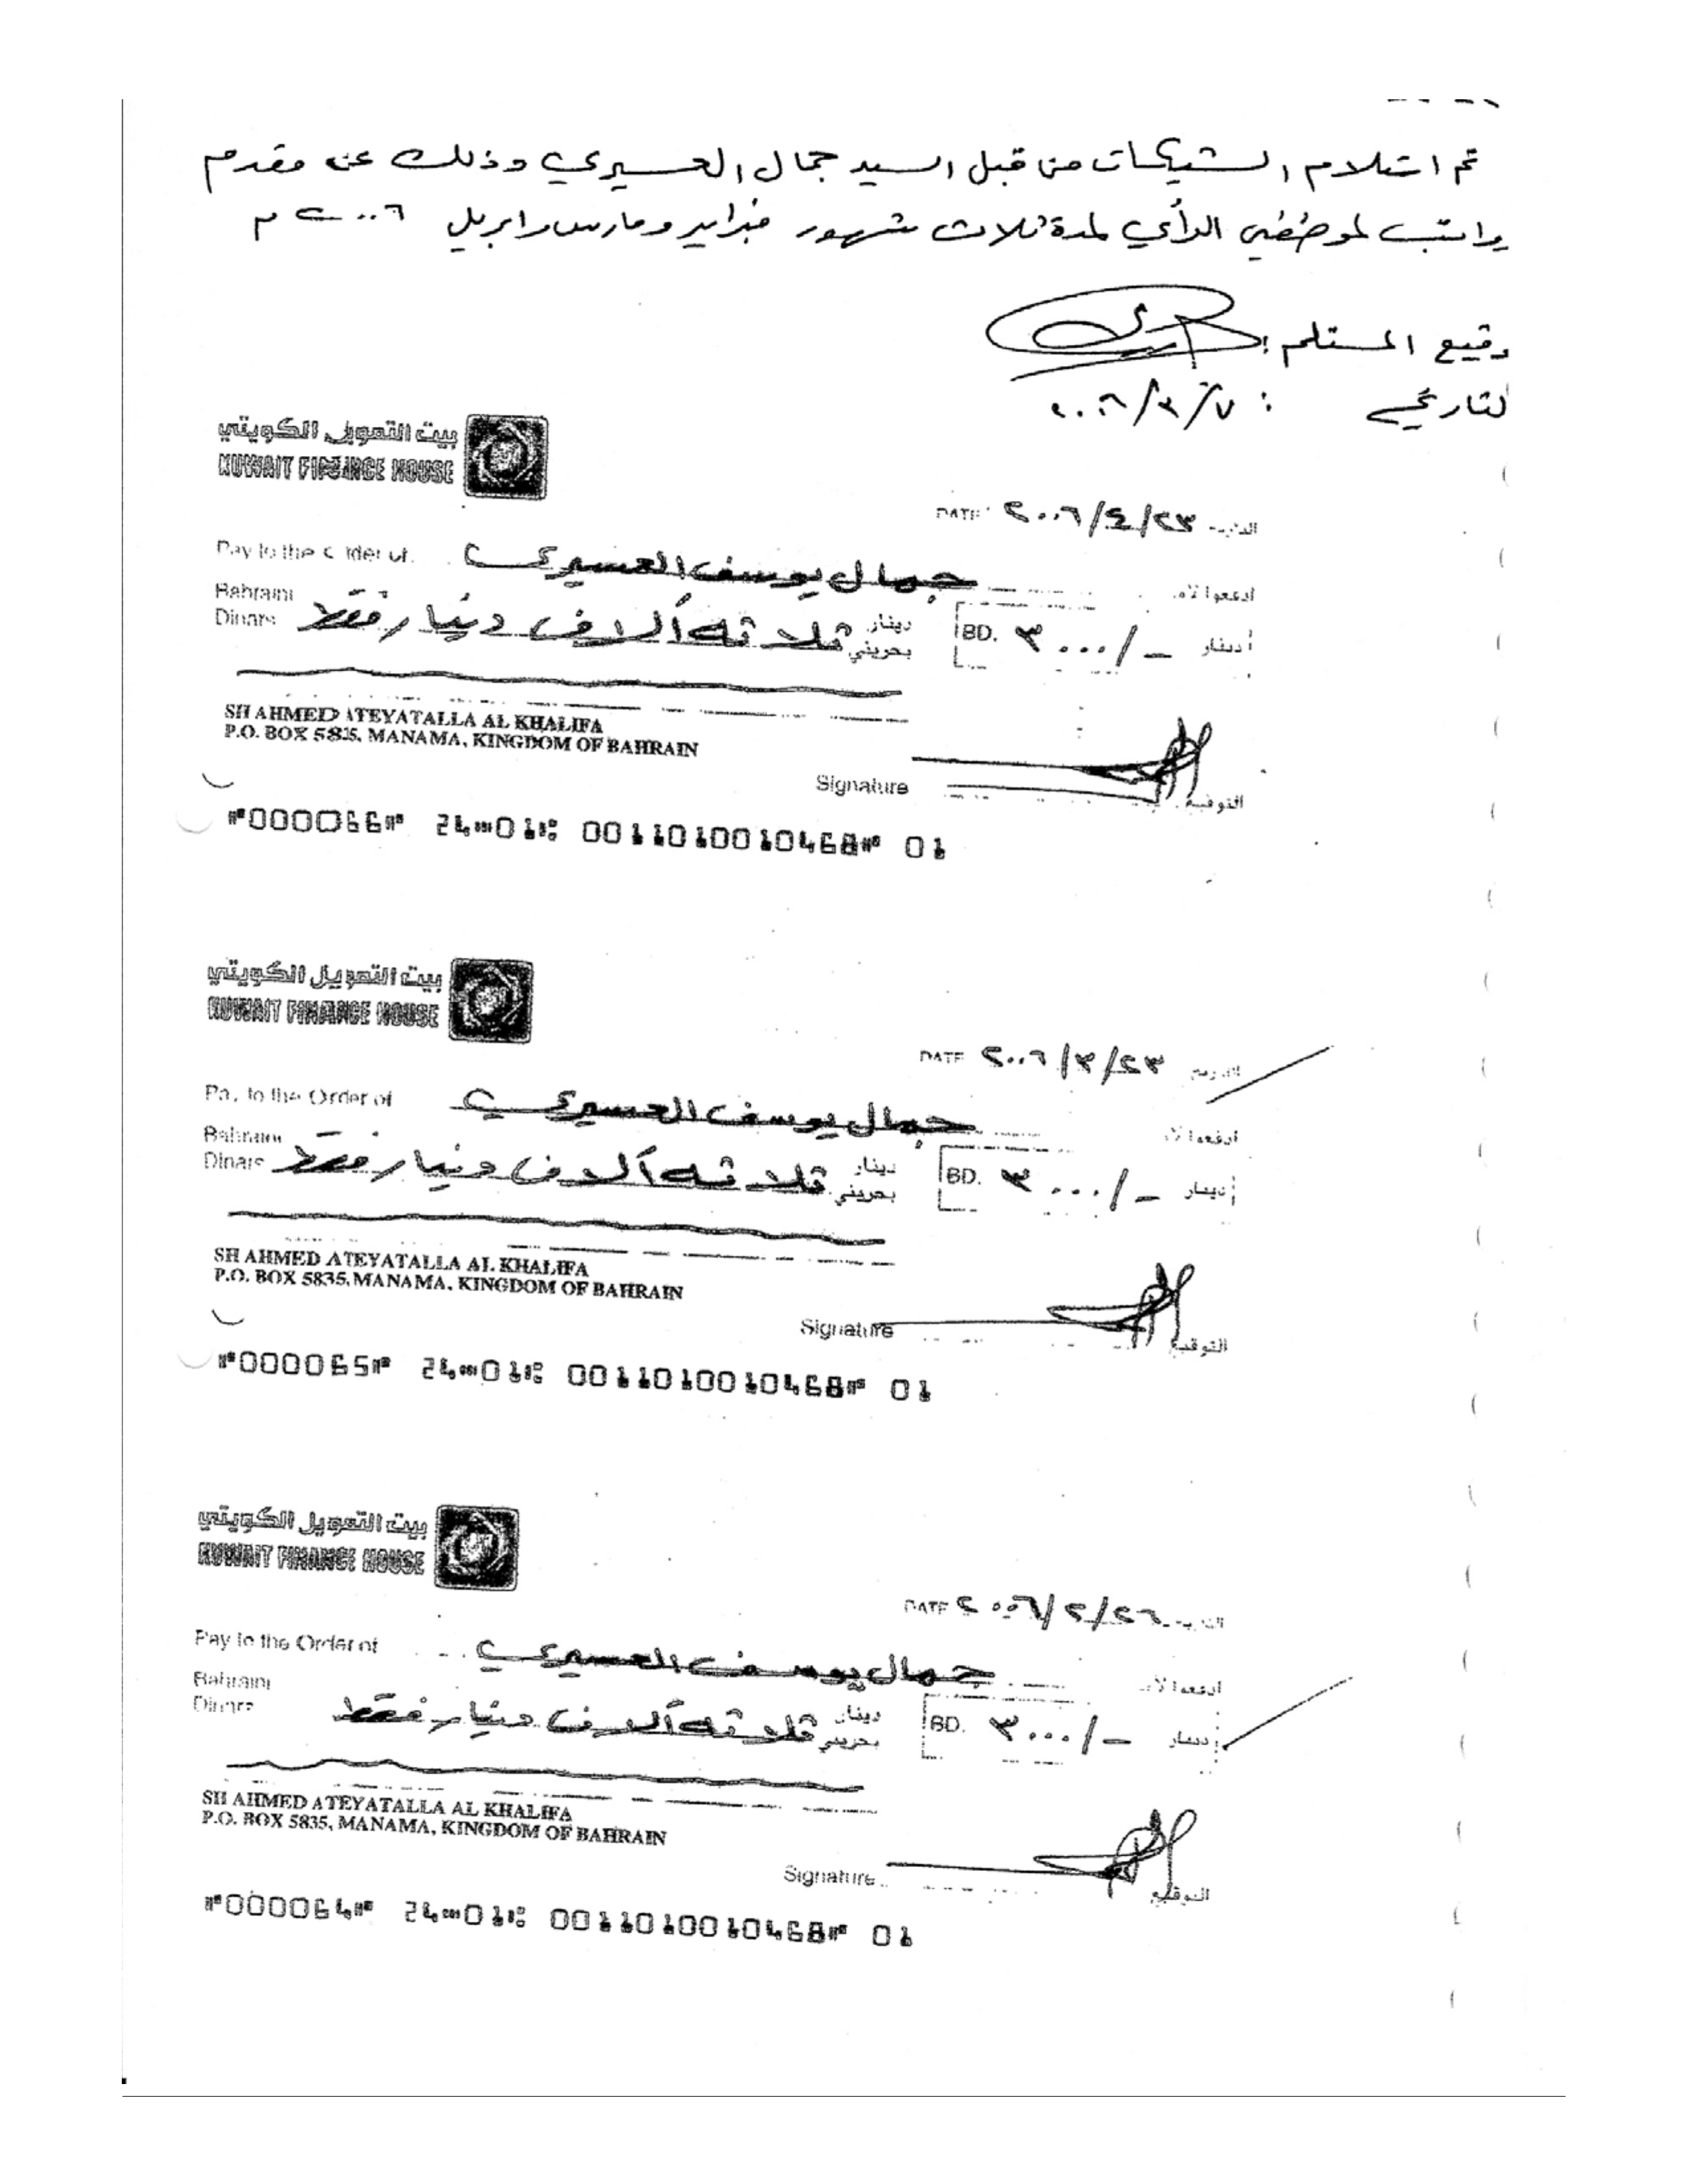 تم استلام الشيكات من قبل السيد جمال العسيري وذلك عن مقدم
رواتب لموظفي الرأي لمدة ثلاث شهور فبراير ومارس وابريل ٢٠٠٦ م
وقيع المستلم :
لتاريخ : ٧/٣/٢٠٠٦
بيت التمويل الكويتي
KUWAIT FINANCE HOUSE
DATE ٢٣/٤/٢٠٠٦
Pay to the Order of جمال يوسف العسيري ادفعوا لأمر
Bahraini
Dinars ثلاثة ألاف دينار فقط دينار بحريني BD. ٣٠٠٠/- دينار
SH AHMED ATEYATALLA AL KHALIFA
P.O. BOX 5835, MANAMA, KINGDOM OF BAHRAIN
Signature التوقيع
⑈000066⑈ 24⑉01⑆ 0011010010468⑈ 01
بيت التمويل الكويتي
KUWAIT FINANCE HOUSE
DATE ٢٣/٣/٢٠٠٦ التاريخ
Pay to the Order of جمال يوسف العسيري ادفعوا لأمر
Bahraini
Dinars ثلاثة ألاف دينار فقط دينار بحريني BD. ٣٠٠٠/- دينار
SH AHMED ATEYATALLA AL KHALIFA
P.O. BOX 5835, MANAMA, KINGDOM OF BAHRAIN
Signature التوقيع
⑈000065⑈ 24⑉01⑆ 0011010010468⑈ 01
بيت التمويل الكويتي
KUWAIT FINANCE HOUSE
DATE ٢٦/٢/٢٠٠٦
Pay to the Order of جمال يوسف العسيري ادفعوا لأمر
Bahraini
Dinars ثلاثة ألاف دينار فقط دينار بحريني BD. ٣٠٠٠/- دينار
SH AHMED ATEYATALLA AL KHALIFA
P.O. BOX 5835, MANAMA, KINGDOM OF BAHRAIN
Signature التوقيع
⑈000064⑈ 24⑉01⑆ 0011010010468⑈ 01